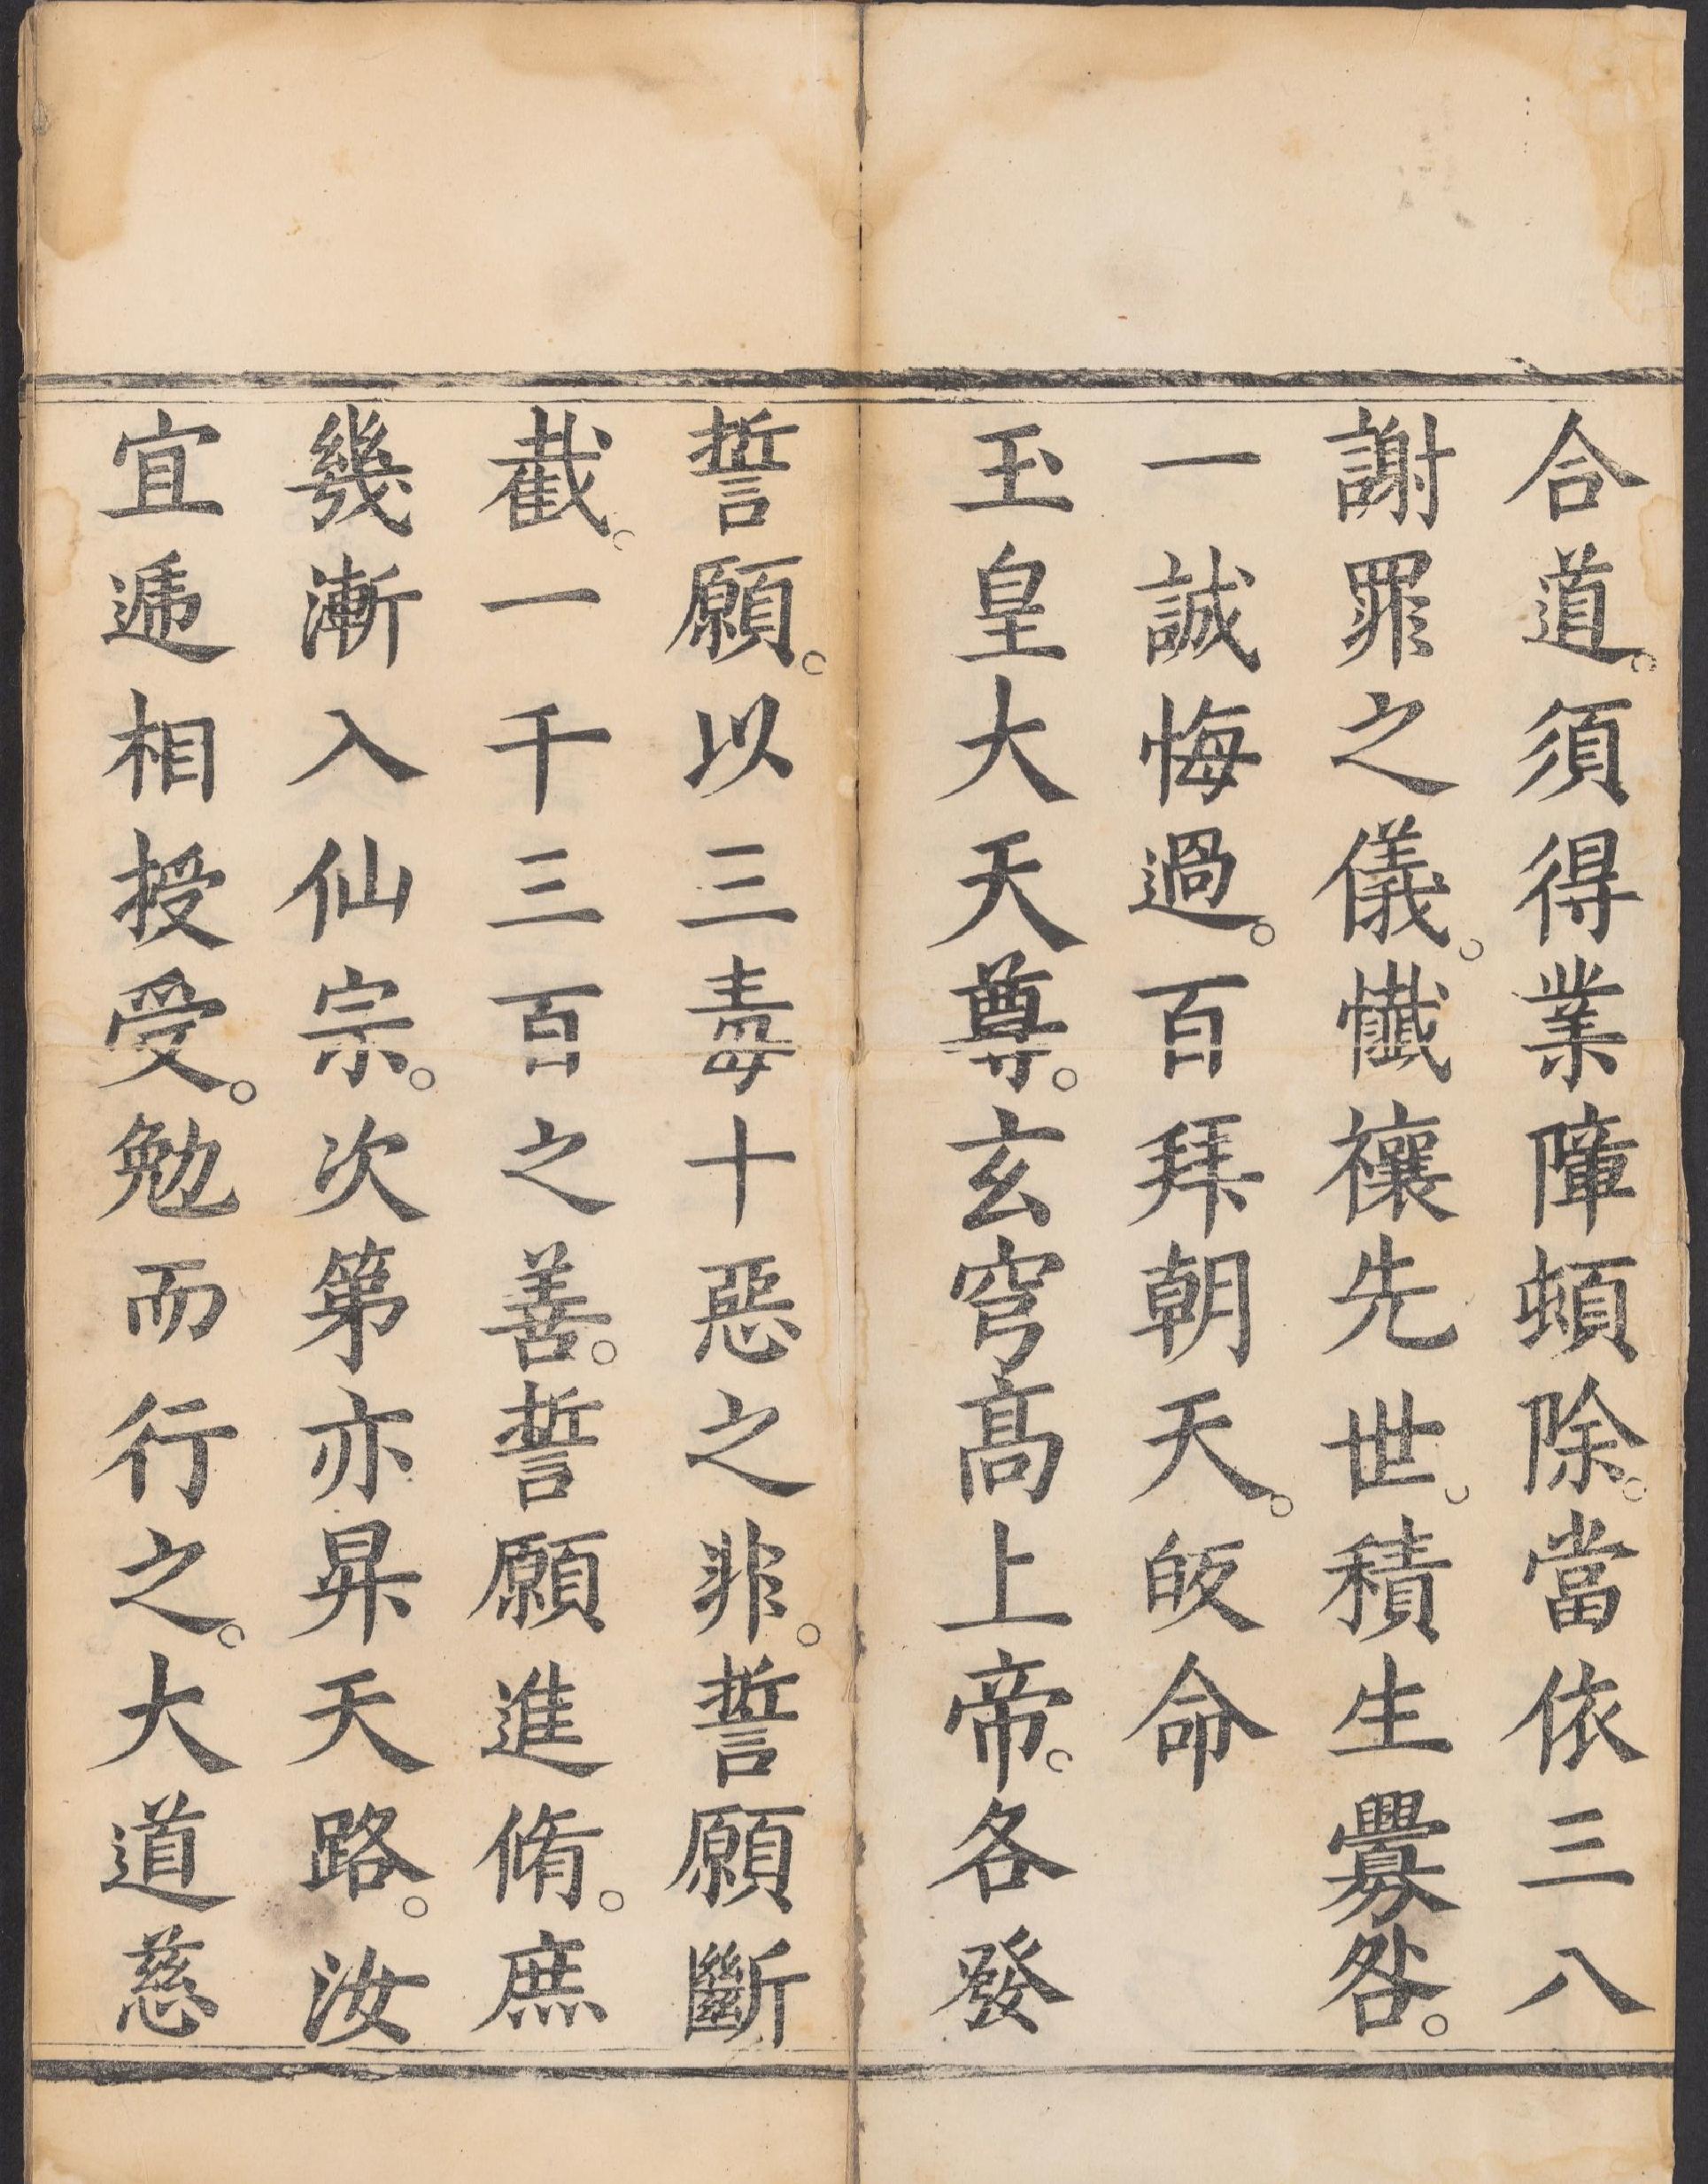 合道。須得業障頓除。當依三八
謝罪之儀。懺禳先世。積生釁咎。
一誠悔過。百拜朝天。皈命
玉皇大天尊。玄穹髙上帝。各發
誓願。以三毒十惡之非。誓願斷
截。一千三百之善。誓願進脩。庶
幾漸入仙宗。次第亦昇天路。汝
宜遞相授受。勉而行之。大道慈